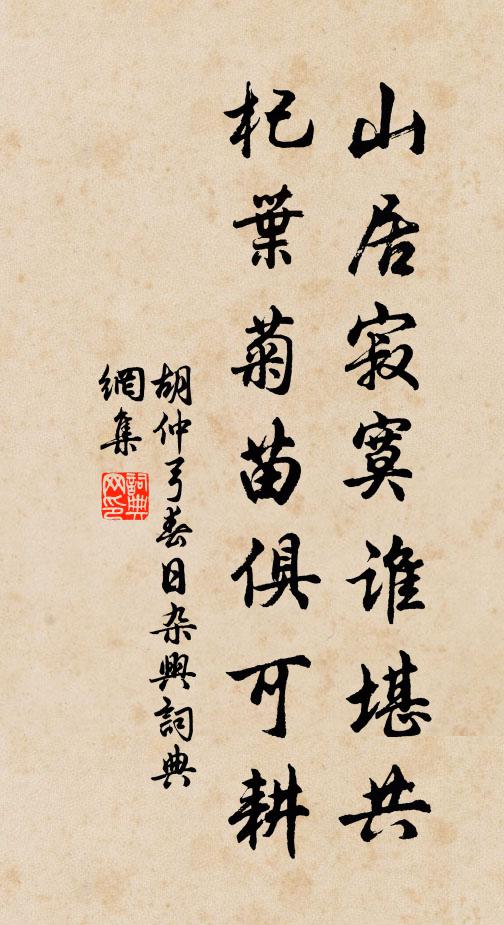 山居寂寞誰堪共
杞葉菊苗俱可耕
胡仲弓春日杂興詞典
網集
詞典
网印